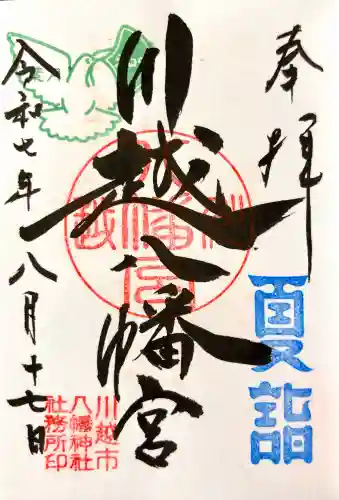 奉拝
夏詣
川越八幡宮
川越市
八幡神社
社務所印
令和七年八月十七日